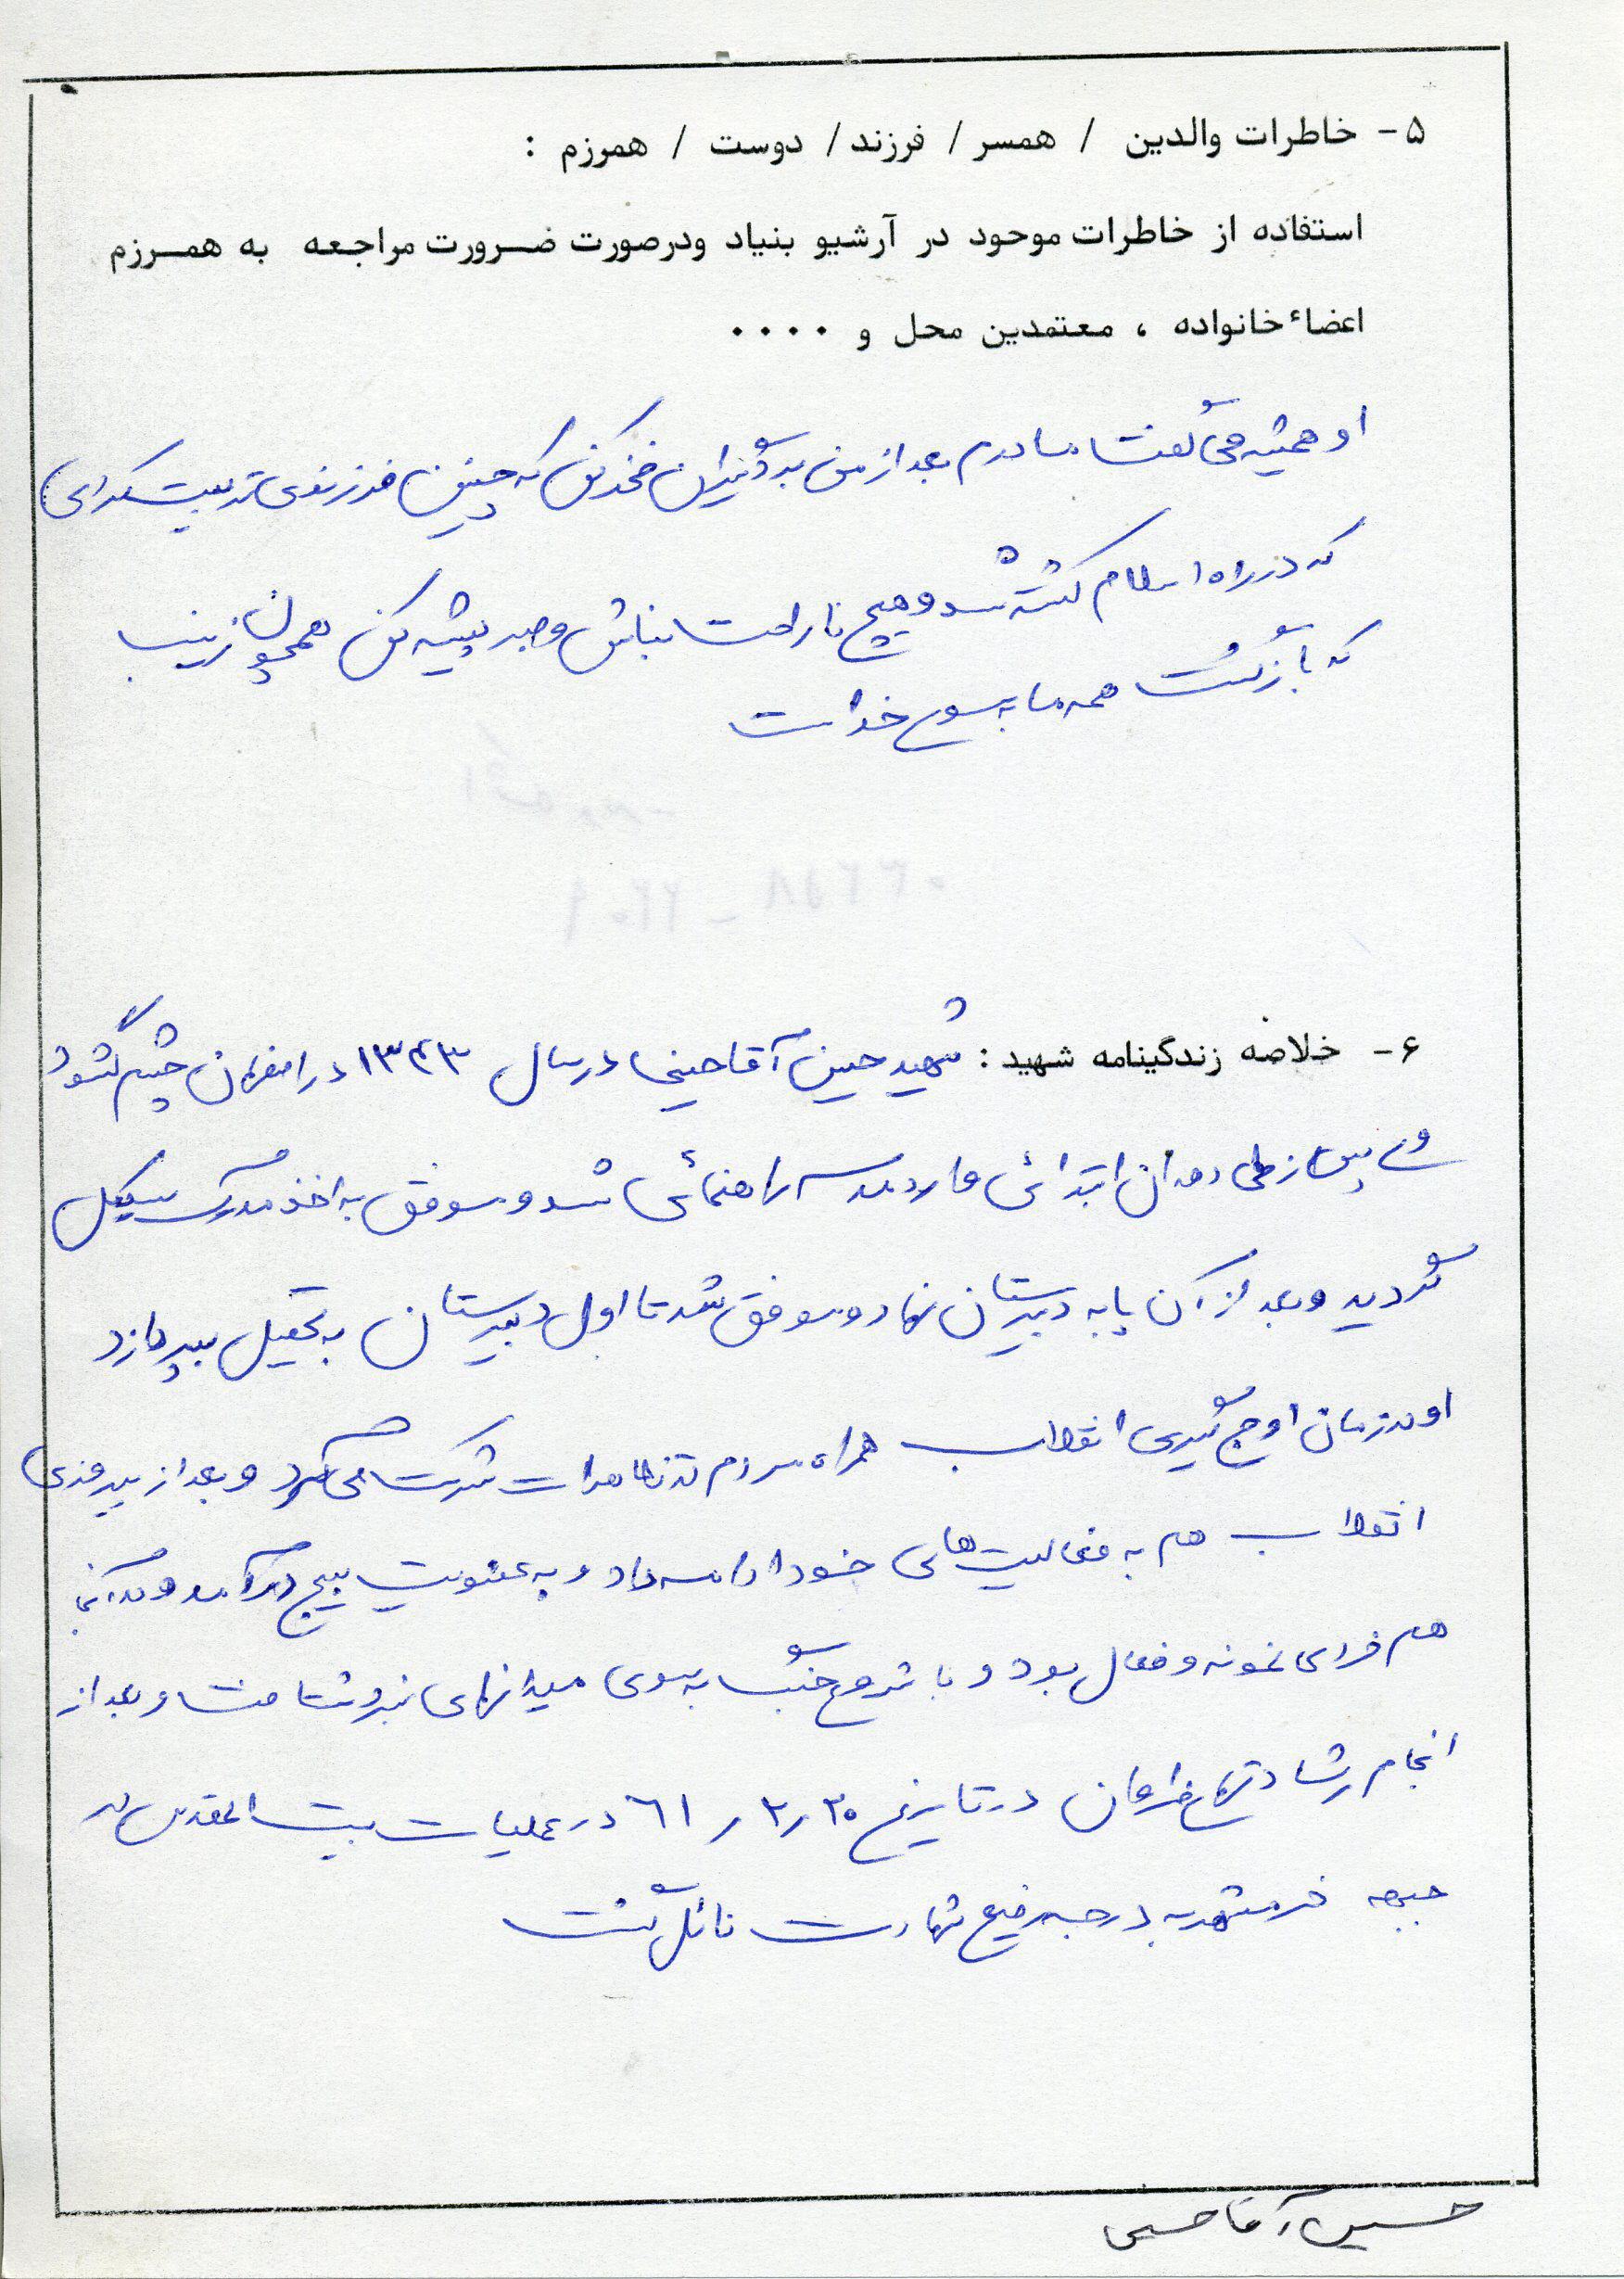 ۵- خاطرات والدین / همسر / فرزند / دوست / همرزم :
استفاده از خاطرات موحود در آرشیو بنیاد ودرصورت ضرورت مراجعه به همرزم
اعضاء خانواده ، معتمدین محل و ....
او همیشه می گفت مادرم بعد از من به دیگران فخر کن که چنین فرزندی تربیت کرده‌ای
که در راه اسلام کشته شد و هیچ ناراحت نباش و صبر پیشه کن همچون زینب
که بازگشت همه ما به سوی خداست
۶- خلاصه زندگینامه شهید : شهید حسین آقاحسینی در سال ۱۳۴۳ در اصفهان چشم گشود
وی پس از طی دوران ابتدائی وارد مدرسه راهنمائی شد و موفق به اخذ مدرک سیکل
گردید و بعد از آن پا به دبیرستان نهاد و موفق شد تا اول دبیرستان به تحصیل بپردازد
او در زمان اوج گیری انقلاب همراه مردم در تظاهرات شرکت می کرد و بعد از پیروزی
انقلاب هم به فعالیت‌های خود ادامه داد و به عضویت بسیج درآمد و در آنجا
هم فردی نمونه و فعال بود و با شروع جنگ به سوی میدانهای نبرد شتافت و بعد از
انجام رشادتهای فراوان در تاریخ ۲۰ ر ۲ ر ۶۱ در عملیات بیت المقدس در
جبهه خرمشهر به درجه رفیع شهادت نائل گشت
حسین آقاحسینی